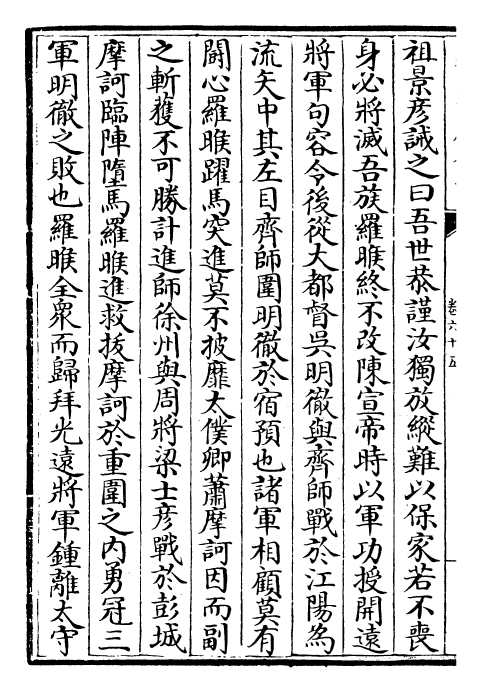 祖景彦誡之曰吾世恭謹汝獨放縱難以保家若不喪
身必將滅吾族羅睺終不改陳宣帝時以軍功授開遠
將軍句容令後從大都督吳明徹與齊師戰於江陽為
流矢中其左目齊師圍明徹於宿預也諸軍相顧莫有
鬪心羅睺躍馬突進莫不披靡太僕卿蕭摩訶因而副
之斬獲不可勝計進師徐州與周將梁士彦戰於彭城
摩訶臨陣墮馬羅睺進救拔摩訶於重圍之内勇冠三
軍明徹之敗也羅睺全衆而歸拜光遠將軍鍾離太守
卷六十五